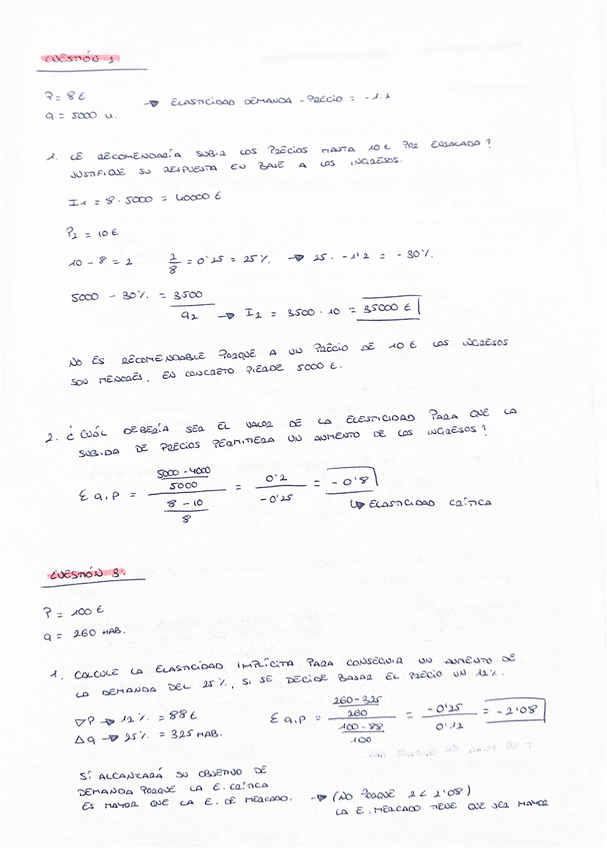 CUESTIÓN 1
P = 8 €
q = 5000 u.
→ ELASTICIDAD DEMANDA - PRECIO = -1.2
1. LE RECOMENDARÍA SUBIR LOS PRECIOS HASTA 10 € POR ENSALADA?
JUSTIFIQUE SU RESPUESTA EN BASE A LOS INGRESOS.
I1 = 8 · 5000 = 40000 €
P2 = 10 €
10 - 8 = 2   2/8 = 0'25 = 25 %. → 25 · -1'2 = -30 %.
5000 - 30 %. = 3500
q2 → I2 = 3500 · 10 = 35000 €
NO ES RECOMENDABLE PORQUE A UN PRECIO DE 10 € LOS INGRESOS
SON MENORES, EN CONCRETO PIERDE 5000 €.
2. ¿CUÁL DEBERÍA SER EL VALOR DE LA ELESTICIDAD PARA QUE LA
SUBIDA DE PRECIOS PERMITIERA UN AUMENTO DE LOS INGRESOS?
E q,P = ((5000 - 4000)/5000)/((8 - 10)/8) = 0'2/-0'25 = -0'8
↳ ELASTICIDAD CRÍTICA
CUESTIÓN 3.
P = 100 €
q = 260 HAB.
1. CALCULE LA ELASTICIDAD IMPLÍCITA PARA CONSEGUIR UN AUMENTO DE
LA DEMANDA DEL 25 %, SI SE DECIDE BAJAR EL PRECIO UN 12 %.
∇P → 12 %. = 88 €
Δq → 25 %. = 325 HAB.
E q,P = ((260 - 325)/260)/((100 - 88)/100) = -0'25/0'12 = -2'08
SÍ ALCANZARÁ SU OBJETIVO DE
DEMANDA PORQUE LA E. CRÍTICA
ES MAYOR QUE LA E. DE MERCADO. → (NO PORQUE 2 < 2'08)
LA E. MERCADO TIENE QUE SER MAYOR